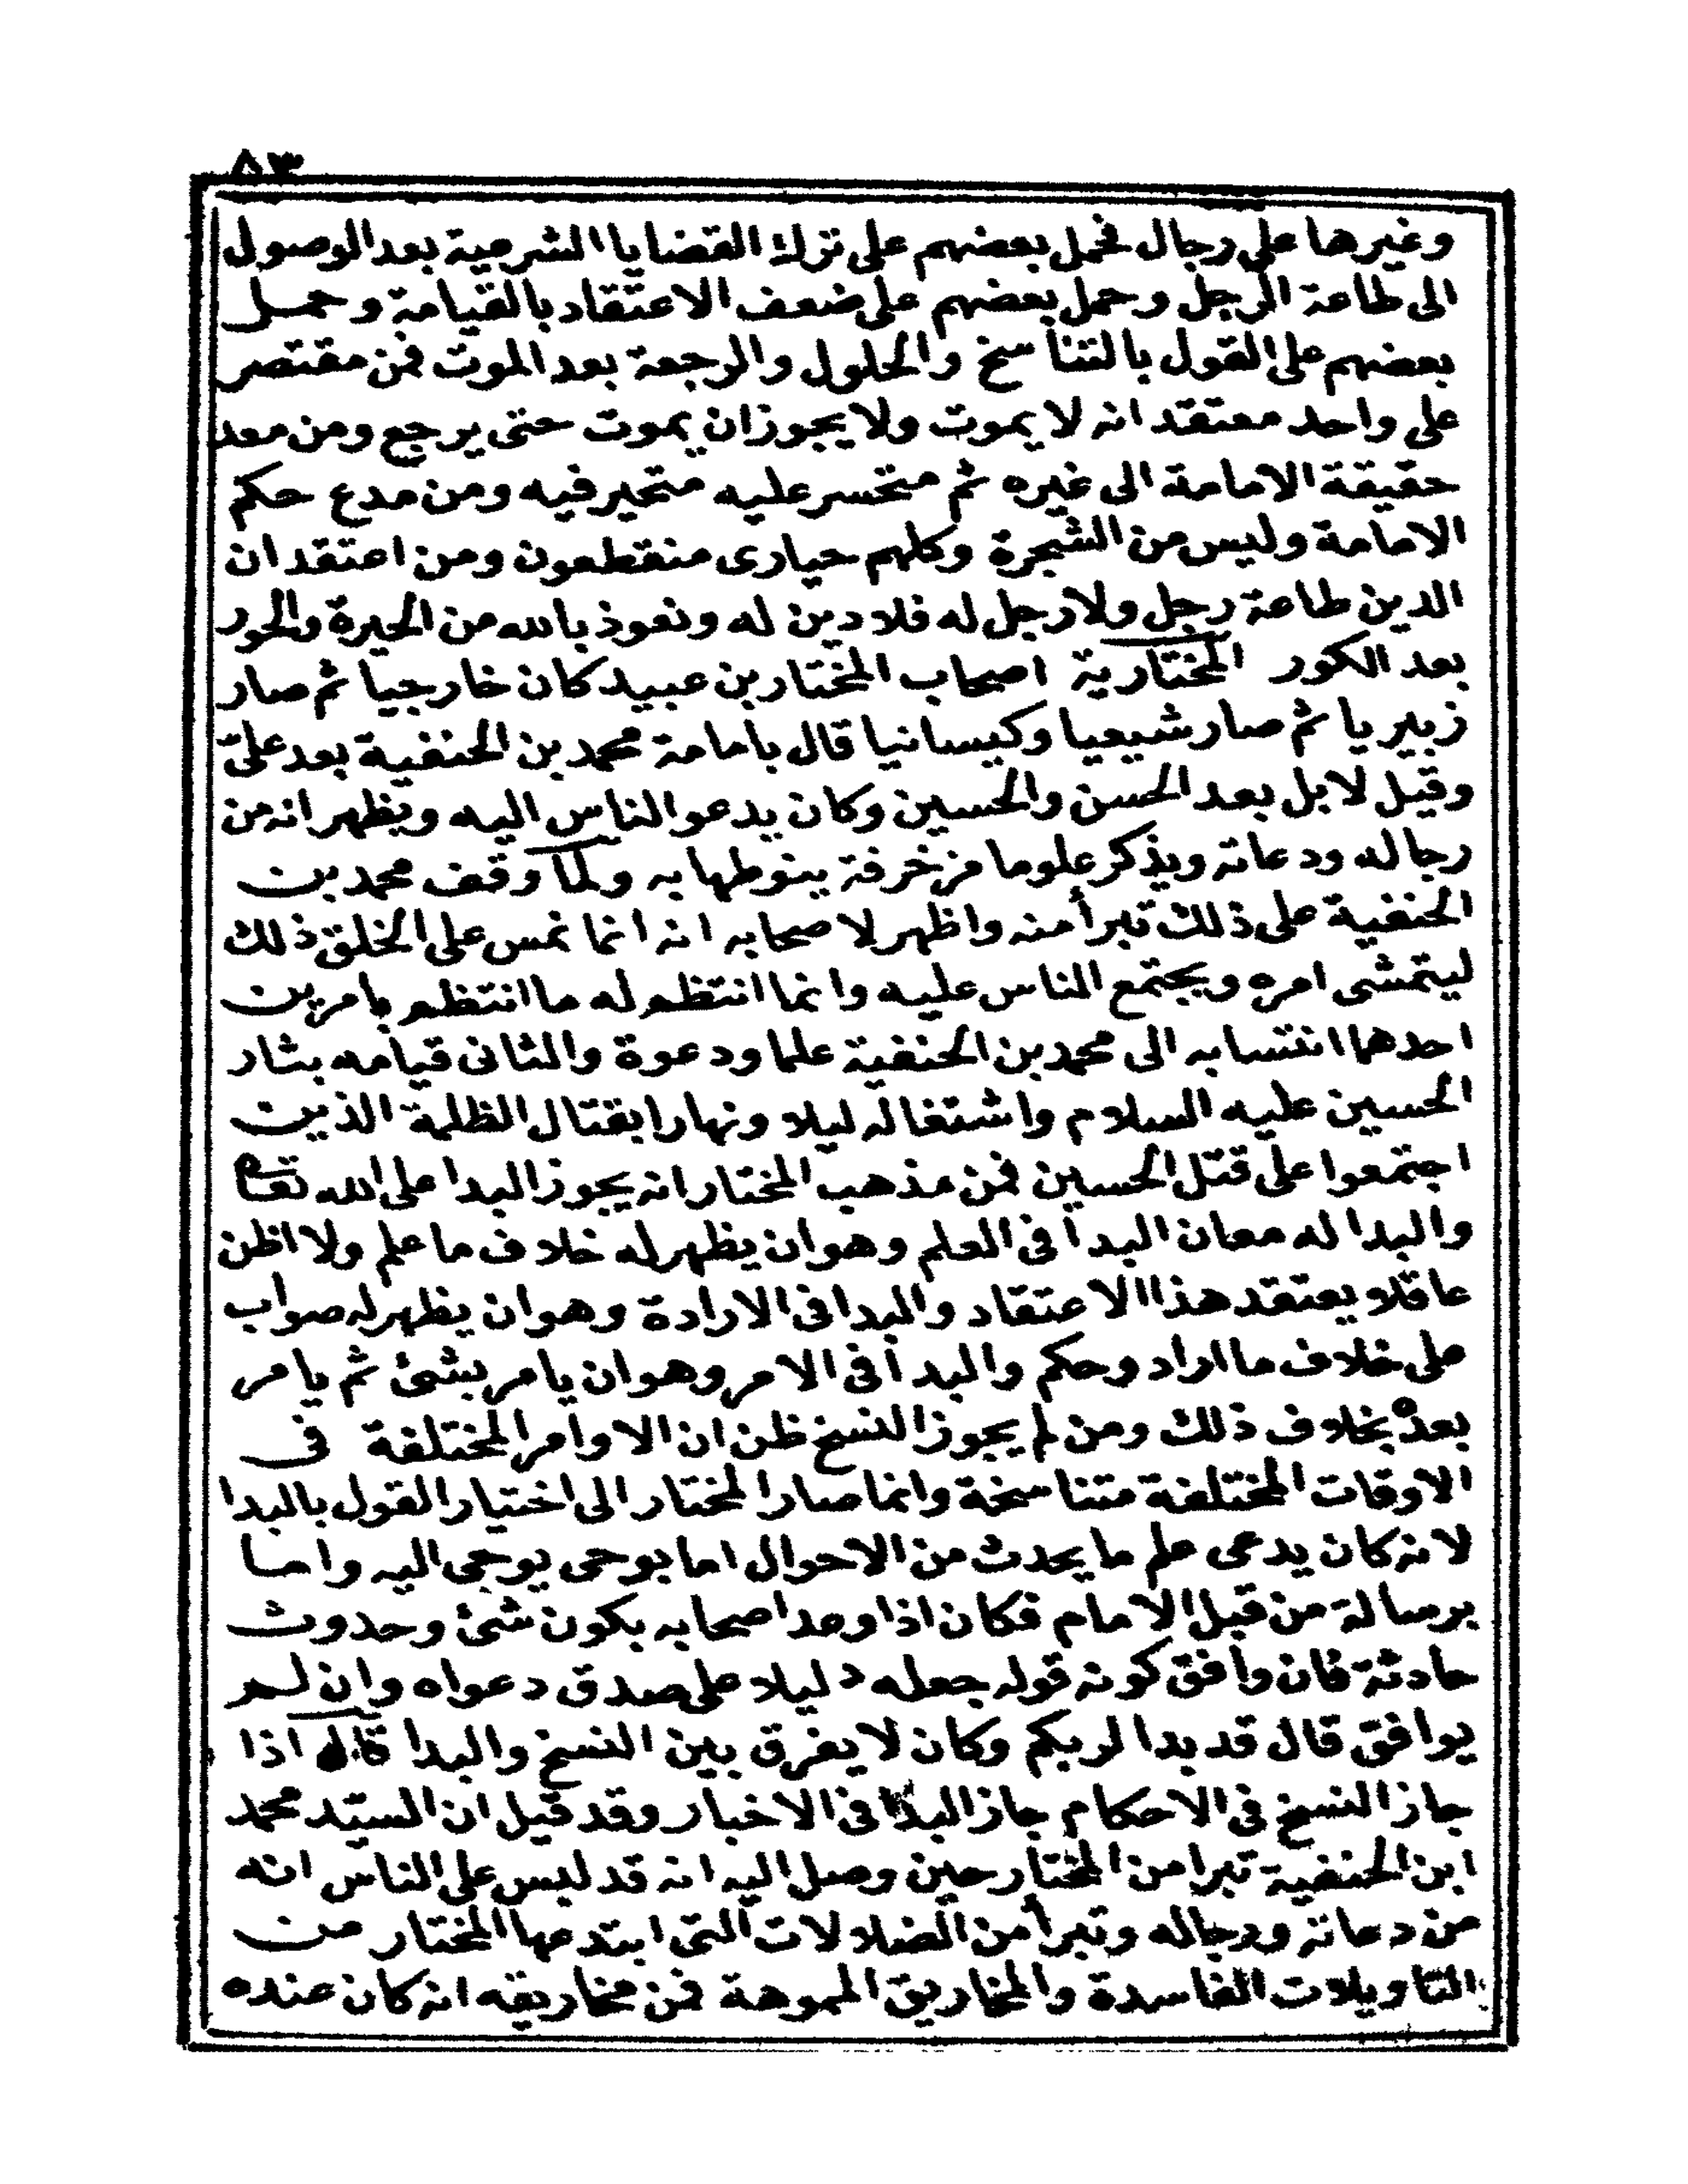 ٨٣
وغيرها على رجال فحمل بعضهم على ترك القضايا الشرعية بعد الوصول
الى طاعة الرجل وحمل بعضهم على ضعف الاعتقاد بالقيامة وحمل
بعضهم على القول بالتناسخ والحلول والرجعة بعد الموت فمن مقتصر
على واحد معتقد انه لا يموت ولا يجوز ان يموت حتى يرجع ومن معد
حقيقة الامامة الى غيره ثم متحسر عليه متحير فيه ومن مدع حكم
الامامة وليس من الشجرة وكلهم حيارى منقطعون ومن اعتقد ان
الدين طاعة رجل ولا رجل له فلا دين له ونعوذ بالله من الحيرة والحور
بعد الكور المختارية اصحاب المختار بن عبيد كان خارجيا ثم صار
زبيريا ثم صار شيعيا وكيسانيا قال بامامة محمد بن الحنفية بعد علىّ
وقيل لا بل بعد الحسن والحسين وكان يدعو الناس اليه ويظهر انه من
رجاله ودعاته ويذكر علوما مزخرفة ينوطها به ولما وقف محمد بن
الحنفية على ذلك تبرأ منه واظهر لاصحابه انه انما نمس على الخلق ذلك
ليتمشى امره ويجتمع الناس عليه وانما انتظم له ما انتظم بامرين
احدهما انتسابه الى محمد بن الحنفية علما ودعوة والثانى قيامه بثار
الحسين عليه السلام واشتغاله ليلا ونهارا بقتال الظلمة الذين
اجتمعوا على قتل الحسين فمن مذهب المختار انه يجوز البدا على الله تعا
والبدا له معان البدا فى العلم وهو ان يظهر له خلاف ما علم ولا اظن
عاقلا يعتقد هذا الاعتقاد والبدا فى الارادة وهو ان يظهر له صواب
على خلاف ما اراد وحكم والبدا فى الامر وهو ان يامر بشئ ثم يامر
بعده بخلاف ذلك ومن لم يجوز النسخ ظن ان الاوامر المختلفة فى
الاوقات المختلفة متناسخة وانما صار المختار الى اختيار القول بالبدا
لانه كان يدعى علم ما يحدث من الاحوال اما بوحى يوحى اليه واما
برسالة من قبل الامام فكان اذا وعد اصحابه بكون شئ وحدوث
حادثة فان وافق كونه قوله جعله دليلا على صدق دعواه وان لم
يوافق قال قد بدا لربكم وكان لا يفرق بين النسخ والبدا قال اذا
جاز النسخ فى الاحكام جاز البدا فى الاخبار وقد قيل ان السيّد محمد
ابن الحنفية تبرا من المختار حين وصل اليه انه قد لبس على الناس انه
من دعاته ورجاله وتبرأ من الضلالات التى ابتدعها المختار من
التاويلات الفاسدة والمخاريق المموهة فمن مخاريقه انه كان عنده